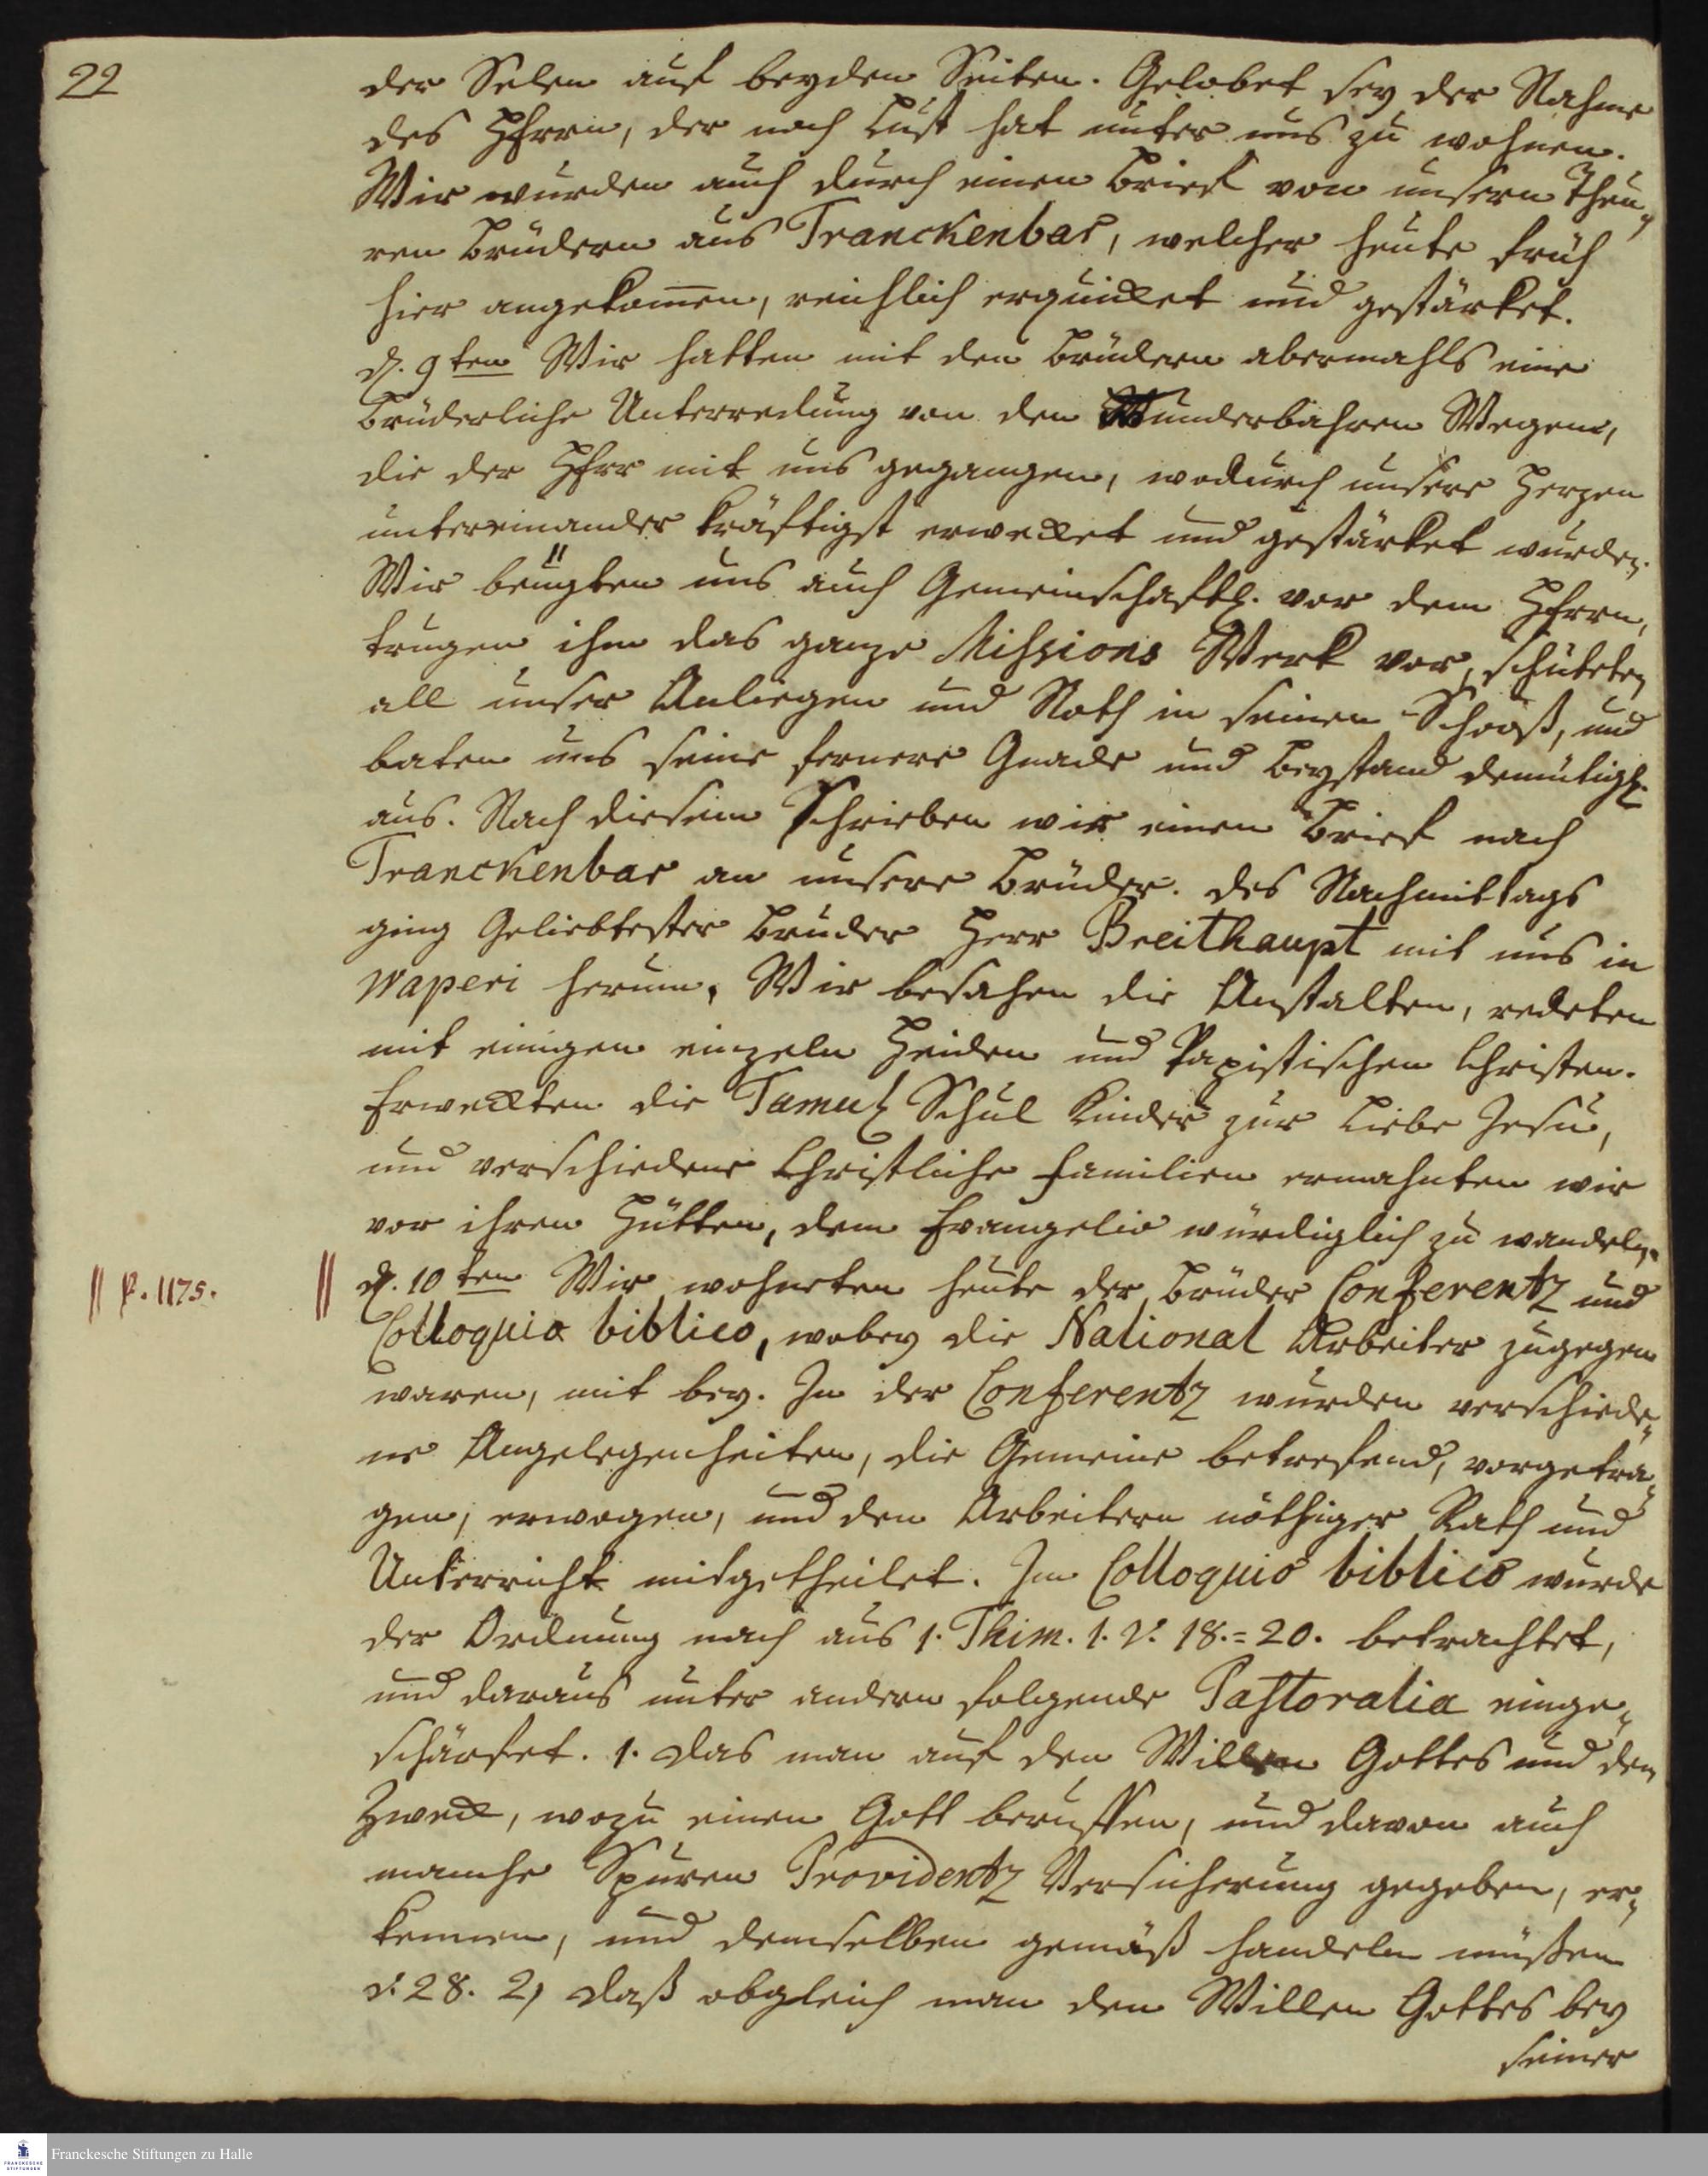 22
der Selen auf beyden Seiten. Gelobet sey der Nahme
des HErrn, der noch Lust hat unter uns zu wohnen.
Wir wurden auch durch einen Brief von unsern Theu„
ren Brüdern aus Tranckenbar, welcher heute früh
hier angekom̄en, reichlich erquicket und gestärket.
d. 9ten Wir hatten mit den Brüdern abermahls eine
Brüderliche Unterredung von den Wunderbahren Wegen,
die der HErr mit uns gegangen, wodurch unsere Herzen
untereinander kräftigst erwecket und gestärket wurden.
Wir beügten uns auch Gemeinschaftl. vor dem HErrn,
trugen ihm das ganze Missions Werk vor, schüteten
all unser Anliegen und Noth in seinen Schooß, und
baten uns seine fernere Gnade und Beystand demütigl.
aus. Nach diesem Schrieben wir einen Brief nach
Tranckenbar an unsere Brüder. des Nachmittags
ging Geliebtester Bruder Herr Breithaupt mit uns in
Waperi herum, Wir besahen die Anstalten, redeten
mit einigen einzeln Heiden und Papistischen Christen.
Erweckten die Tamul Schul Kinder zur Liebe Jesu,
und verschiedene Christliche Familien ermahnten wir
vor ihren Hütten, dem Evangelio würdiglich zu wandeln.
|| p. 1175. || d. 10ten Wir wohneten heute der Brüder Conferentz und
Colloquio biblico, wobey die National Arbeiter zugegen
waren, mit bey. In der Conferentz wurden verschiede„
ne Angelegenheiten, die Gemeine betrefend, vorgetra„
gen, erwogen, und den Arbeitern nöthiger Rath und
Unterricht mitgetheilet. Im Colloquio biblico wurde
der Ordnung nach aus 1. Thim. 1. V. 18.=20. betrachtet,
und daraus unter andern folgende Pastoralia einge„
schärfet. 1. das man auf den Willen Gottes und den
Zweck, wozu einen Gott beruffen, und davon auch
manche Spuren Providentz Versicherung gegeben, er„
kennen, und demselben gemäß handeln müßen
v. 28. 2, daß obgleich man den Willen Gottes bey
seiner
FRANCKESCHE STIFTUNGEN
Franckesche Stiftungen zu Halle